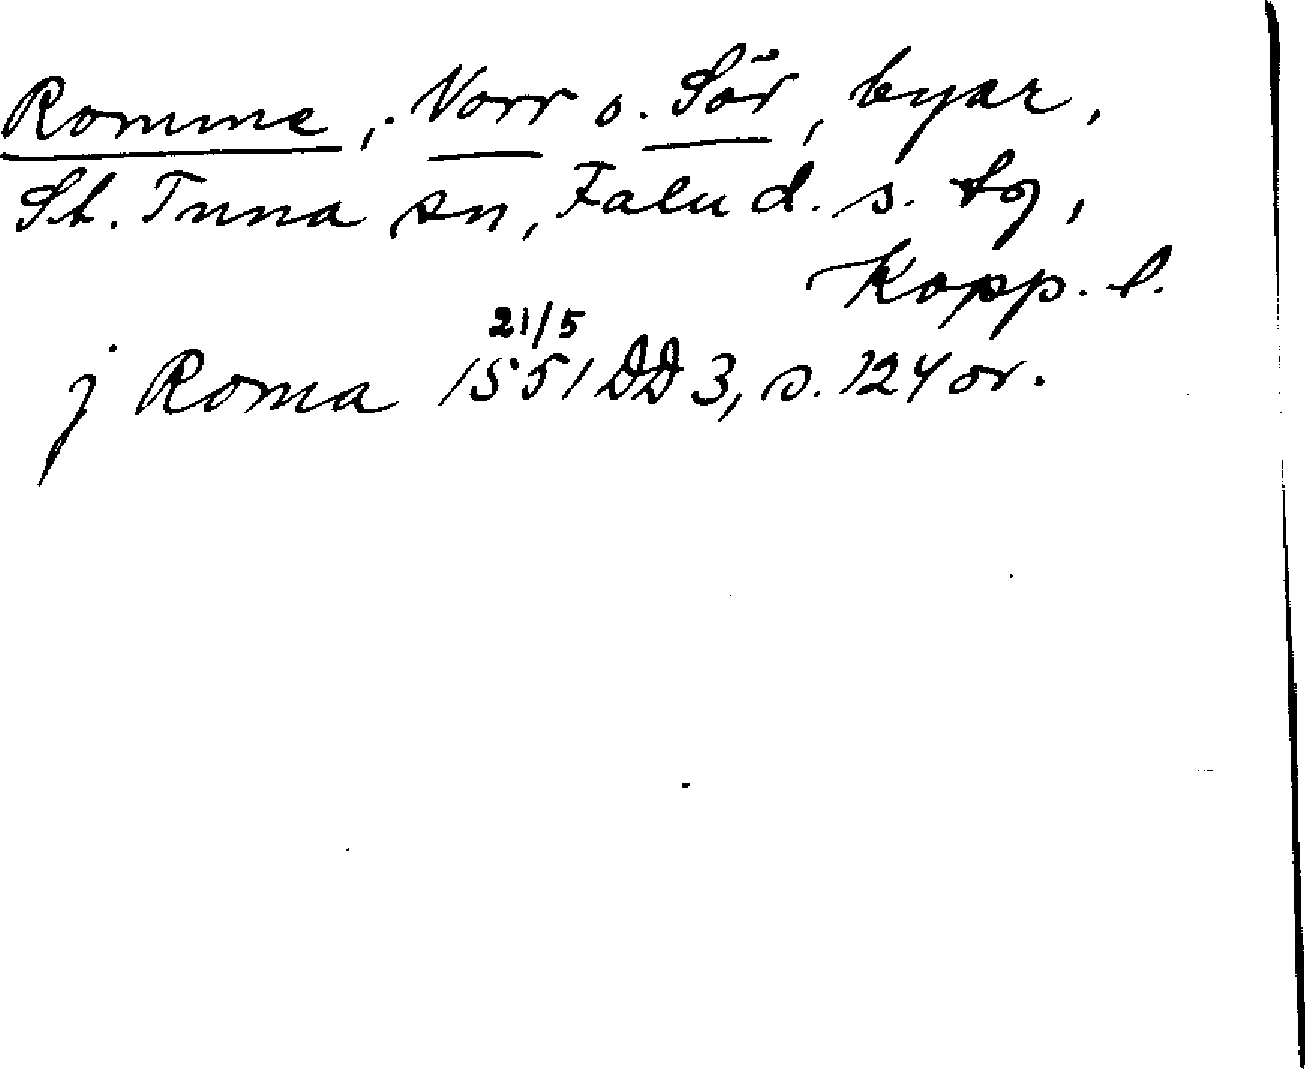 Romme, Norr o. Sör, byar,
St. Tuna sn, Falu d. s. tg,
Kopp. l.
21/5
j Roma 1551 DD 3, s. 124 or.